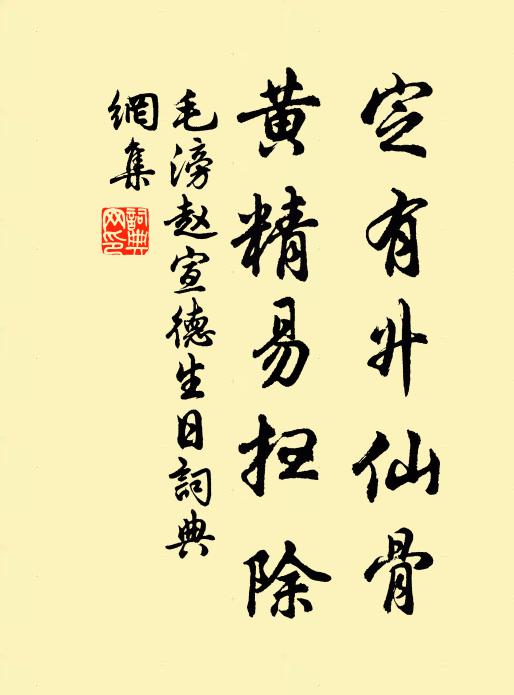 定有升仙骨
黄精易扫除
毛滂赵宣德生日詞典
網集
詞典
网印